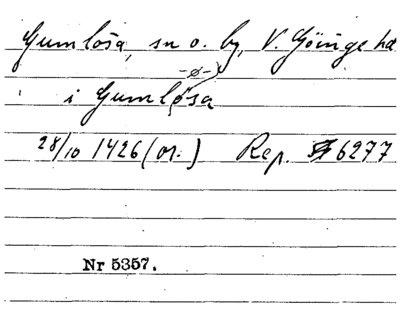 Gumlösa, sn o. by, V. Göinge hd
-ø-)
i Gumlösa
28/10 1426 (or.) Rep. 6277
Nr 5357.